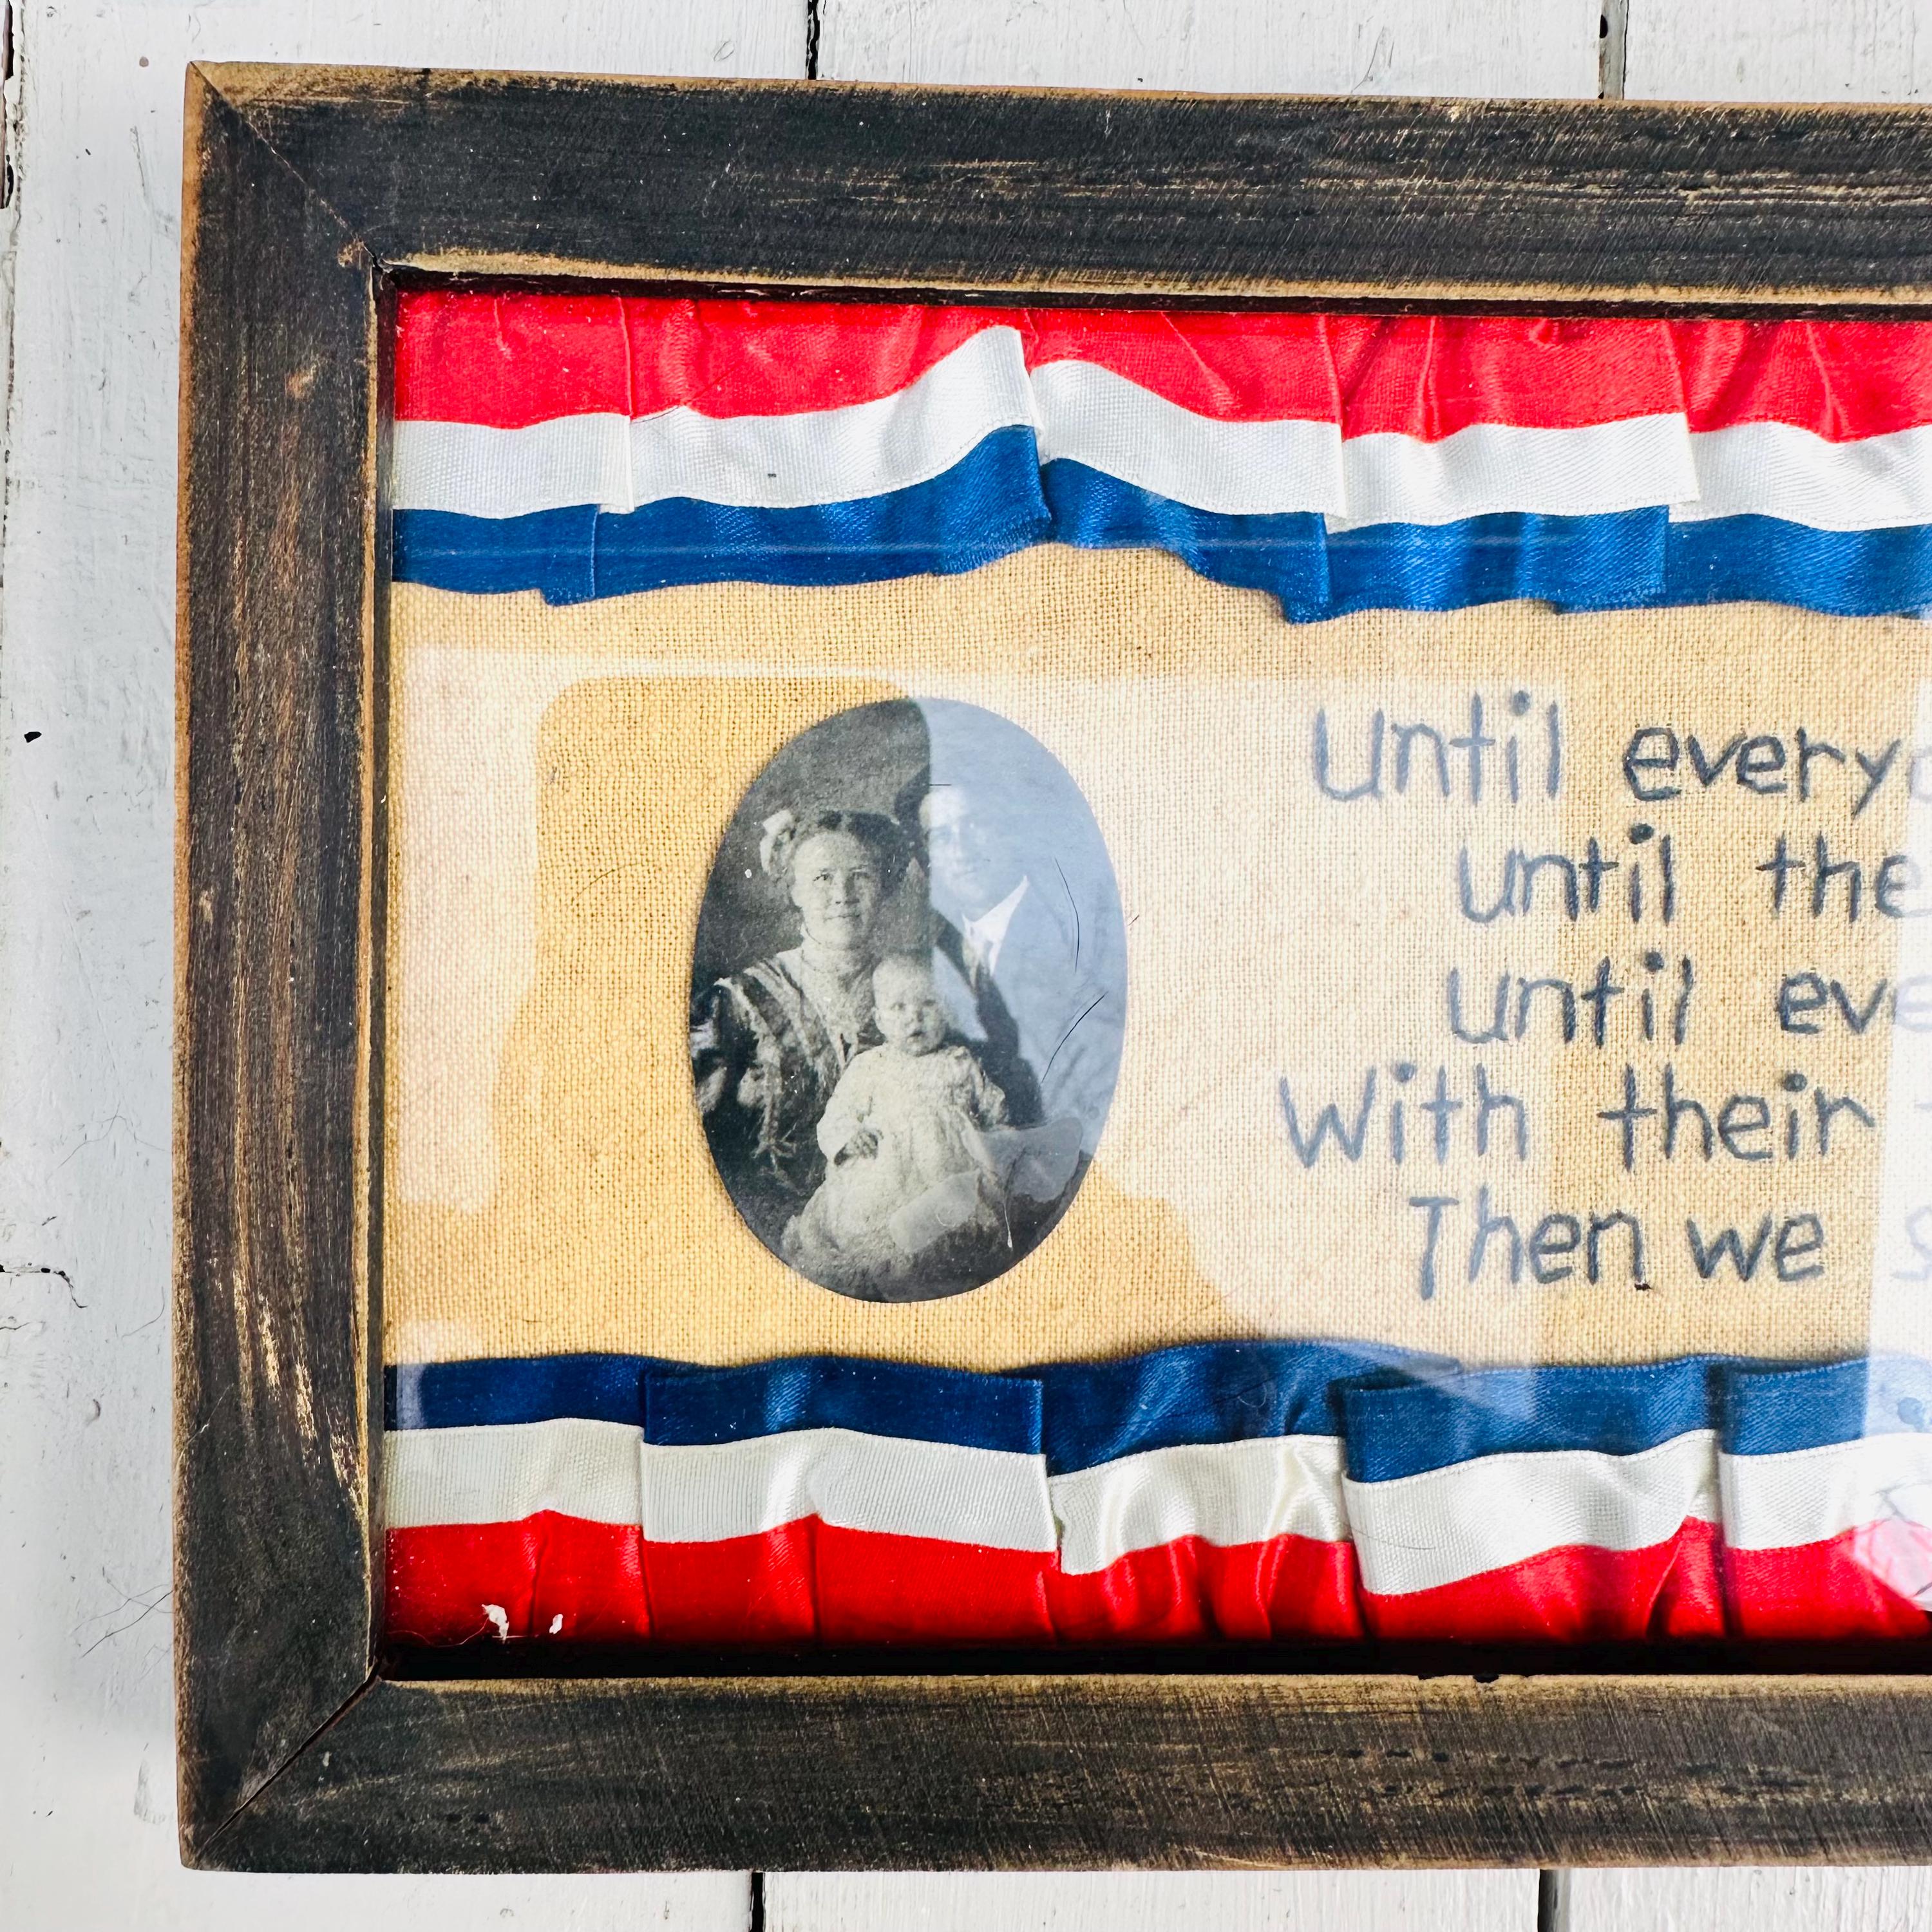 Until every
until the
until eve
With their
Then we